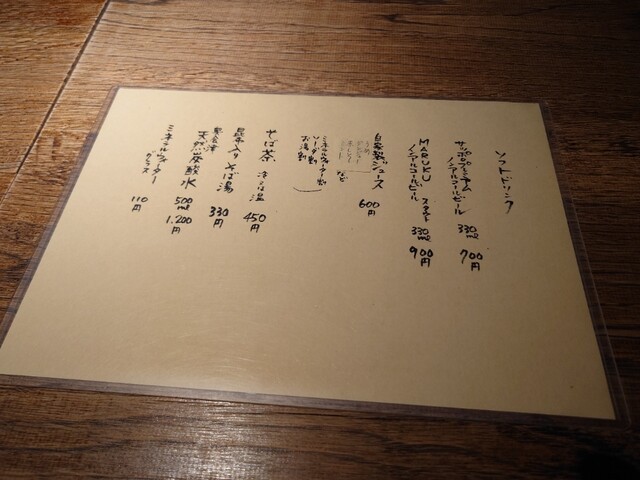 ソフトドリンク
サッポロプレミアム
ノンアルコールビール 330ml 700円
MARUKU
ノンアルコールビール 330ml 900円
自家製ジュース 600円
など
ミネラルウォーター割
ソーダ割
お湯割
そば茶 冷・温 450円
昆布入りそば湯 330円
奥会津
天然炭酸水 500ml 1,200円
ミネラルウォーター
グラス 110円